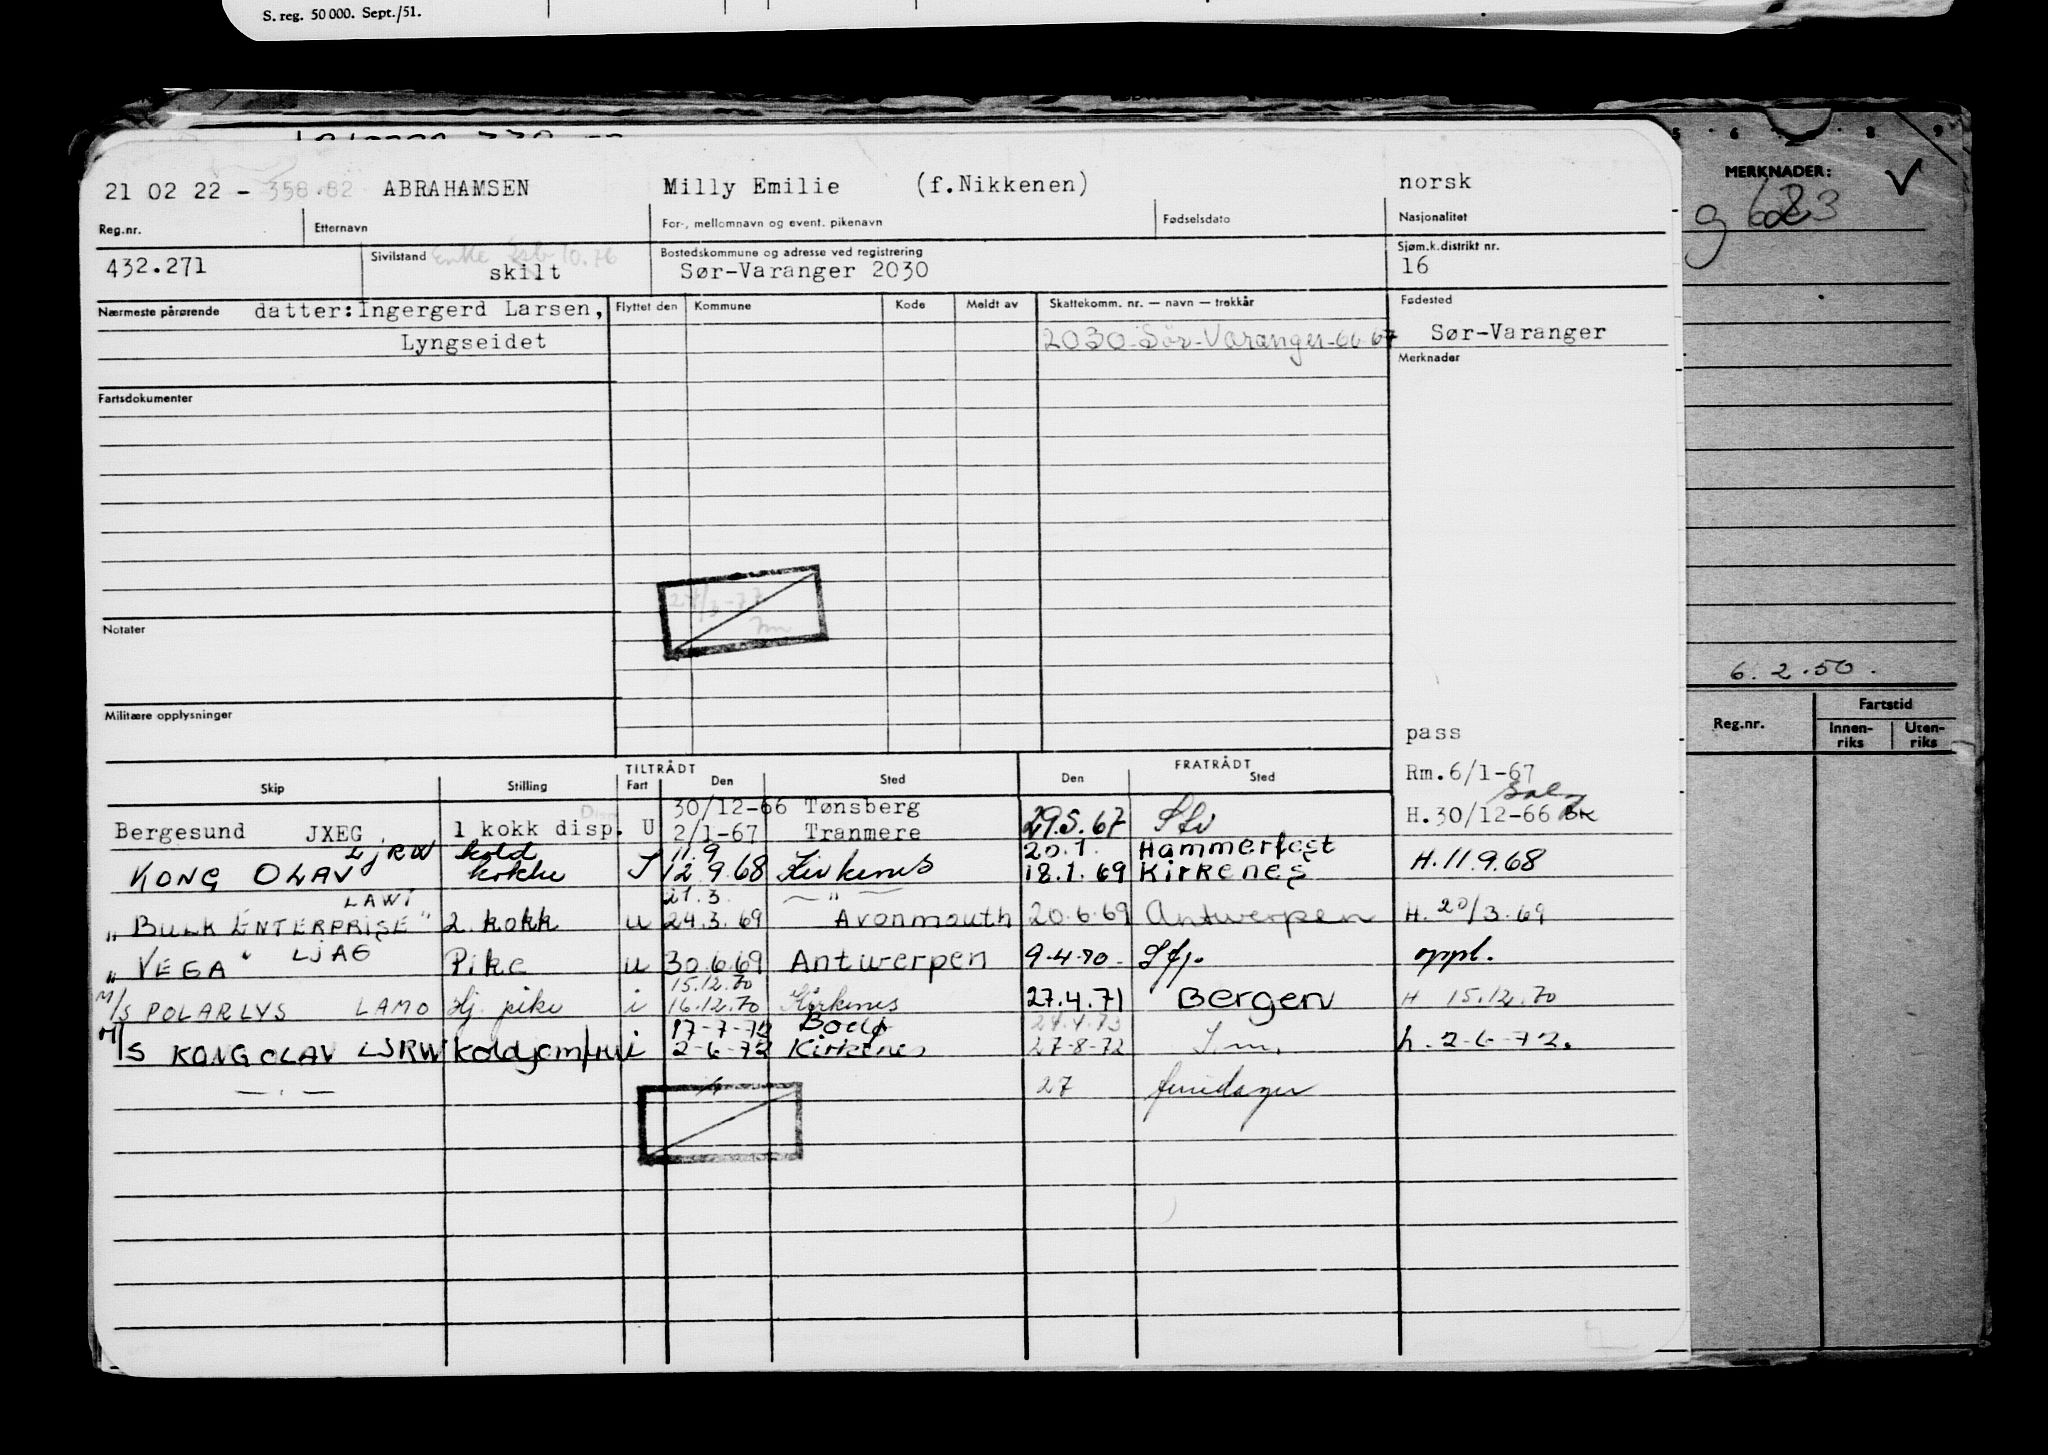 S. reg. 50 000. Sept./51.
21 02 22 - 358.82 ABRAHAMSEN Milly Emilie (f.Nikkenen) norsk
Reg.nr. Etternavn For-, mellomnavn og event. pikenavn Fødselsdato Nasjonalitet
432.271 Sivilstand Enke 10.76 skilt
Bostedskommune og adresse ved registrering
Sør-Varanger 2030
Sjøm.k.distrikt nr.
16
Nærmeste pårørende datter:Ingergerd Larsen,
Lyngseidet
Flyttet den Kommune Kode Meldt av Skattekomm. nr. — navn — trekkår
2030-Sør-Varanger-66-67
Fødested
Sør-Varanger
Merknader
Fartsdokumenter
Notater
Militære opplysninger
pass
Rm.6/1-67
TILTRÅDT FRATRÅDT
Skip Stilling Fart Den Sted Den Sted
30/12-66 Tønsberg
Bergesund JXEG 1 kokk disp. U 2/1-67 Tranmere 29.5.67 H.30/12-66
LJRW kold 11.9 20.1. Hammerfest
KONG OLAV kokke I 12.9.68 Kirkenes 18.1.69 Kirkenes H.11.9.68
LAWI 21.3. — " —
„ BULK ENTERPRISE" 2. kokk u 24.3.69 Avonmouth 20.6.69 Antwerpen H. 20/3.69
„ VEGA " LJAG Pike u 30.6.69 Antwerpen 9.4.70 Sfj. oppl.
15.12.70
M/S POLARLYS LAMO Hj. pike i 16.12.70 Kirkenes 27.4.71 Bergen H 15.12.70
17-7-72 Bodø
M/S KONG OLAV LJRW koldjomfru i 2-6-72 Kirkenes 27-8-72 h. 2-6-72.
— . — 27 feriedager
5 6 8 9
MERKNADER:
6.2.50.
Reg.nr. Fartstid
Innen-riks Uten-riks